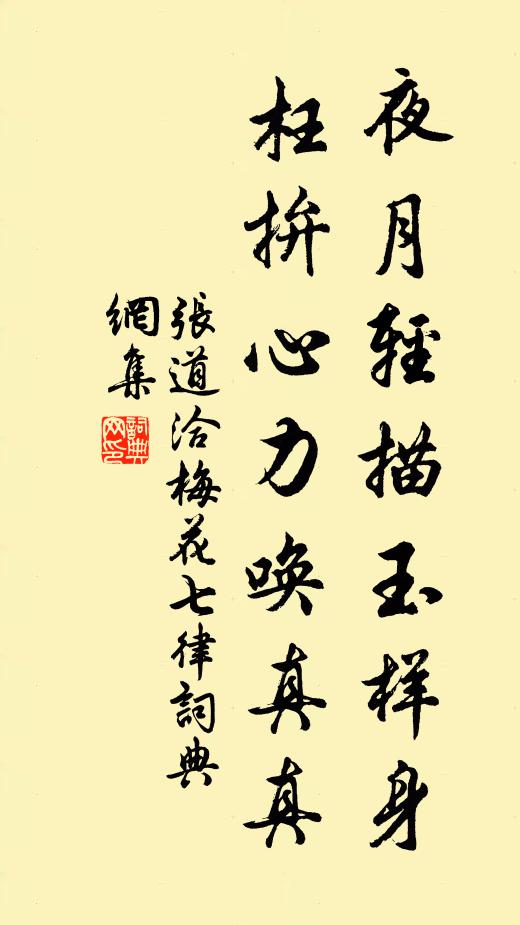 夜月輕描玉样身
枉拚心力唤真真
張道洽梅花七律詞典
網集
詞典
网印